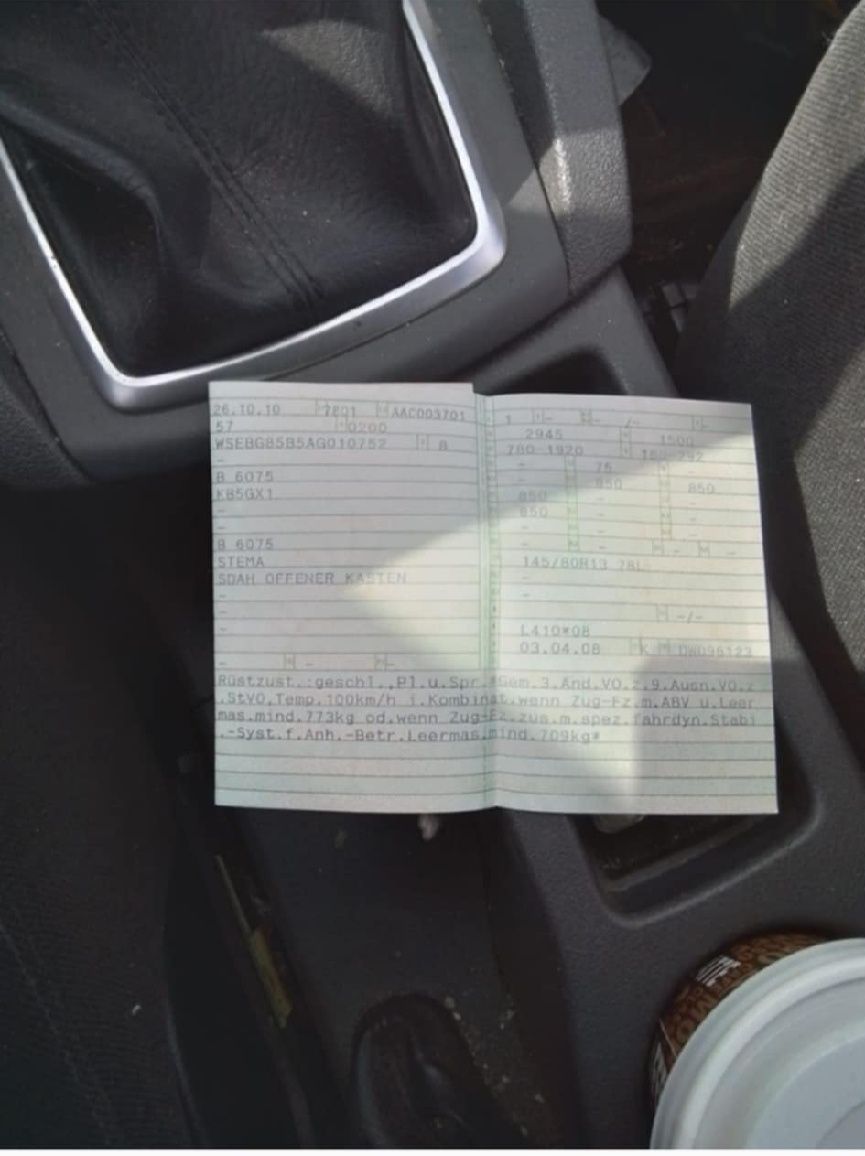 26.10.10 7801 AAC003701
57 0200
WSEBG85B5AG010752 8
-
B 6075
KB5GX1
-
-
B 6075
STEMA
SDAH OFFENER KASTEN
-
-
-
-
- - -
1 - - -/-
2945 - 1500
780-1920 160-292
- 75 -
- 850 850
850 - -
850 - -
- - - -
145/80R13 78
-
-
- -/-
L410*08
03.04.08 K DW098123
Rüstzust.:geschl.,Pl.u.Spr.*Gem.3.Änd.VO.z.9.Ausn.VO.z
.StVO,Temp.100km/h i.Kombinat.wenn Zug-Fz.m.ABV u.Leer
mas.mind.773kg od.wenn Zug-Fz.zus.m.spez.fahrdyn.Stabi
.-Syst.f.Anh.-Betr.Leermas.mind.709kg*